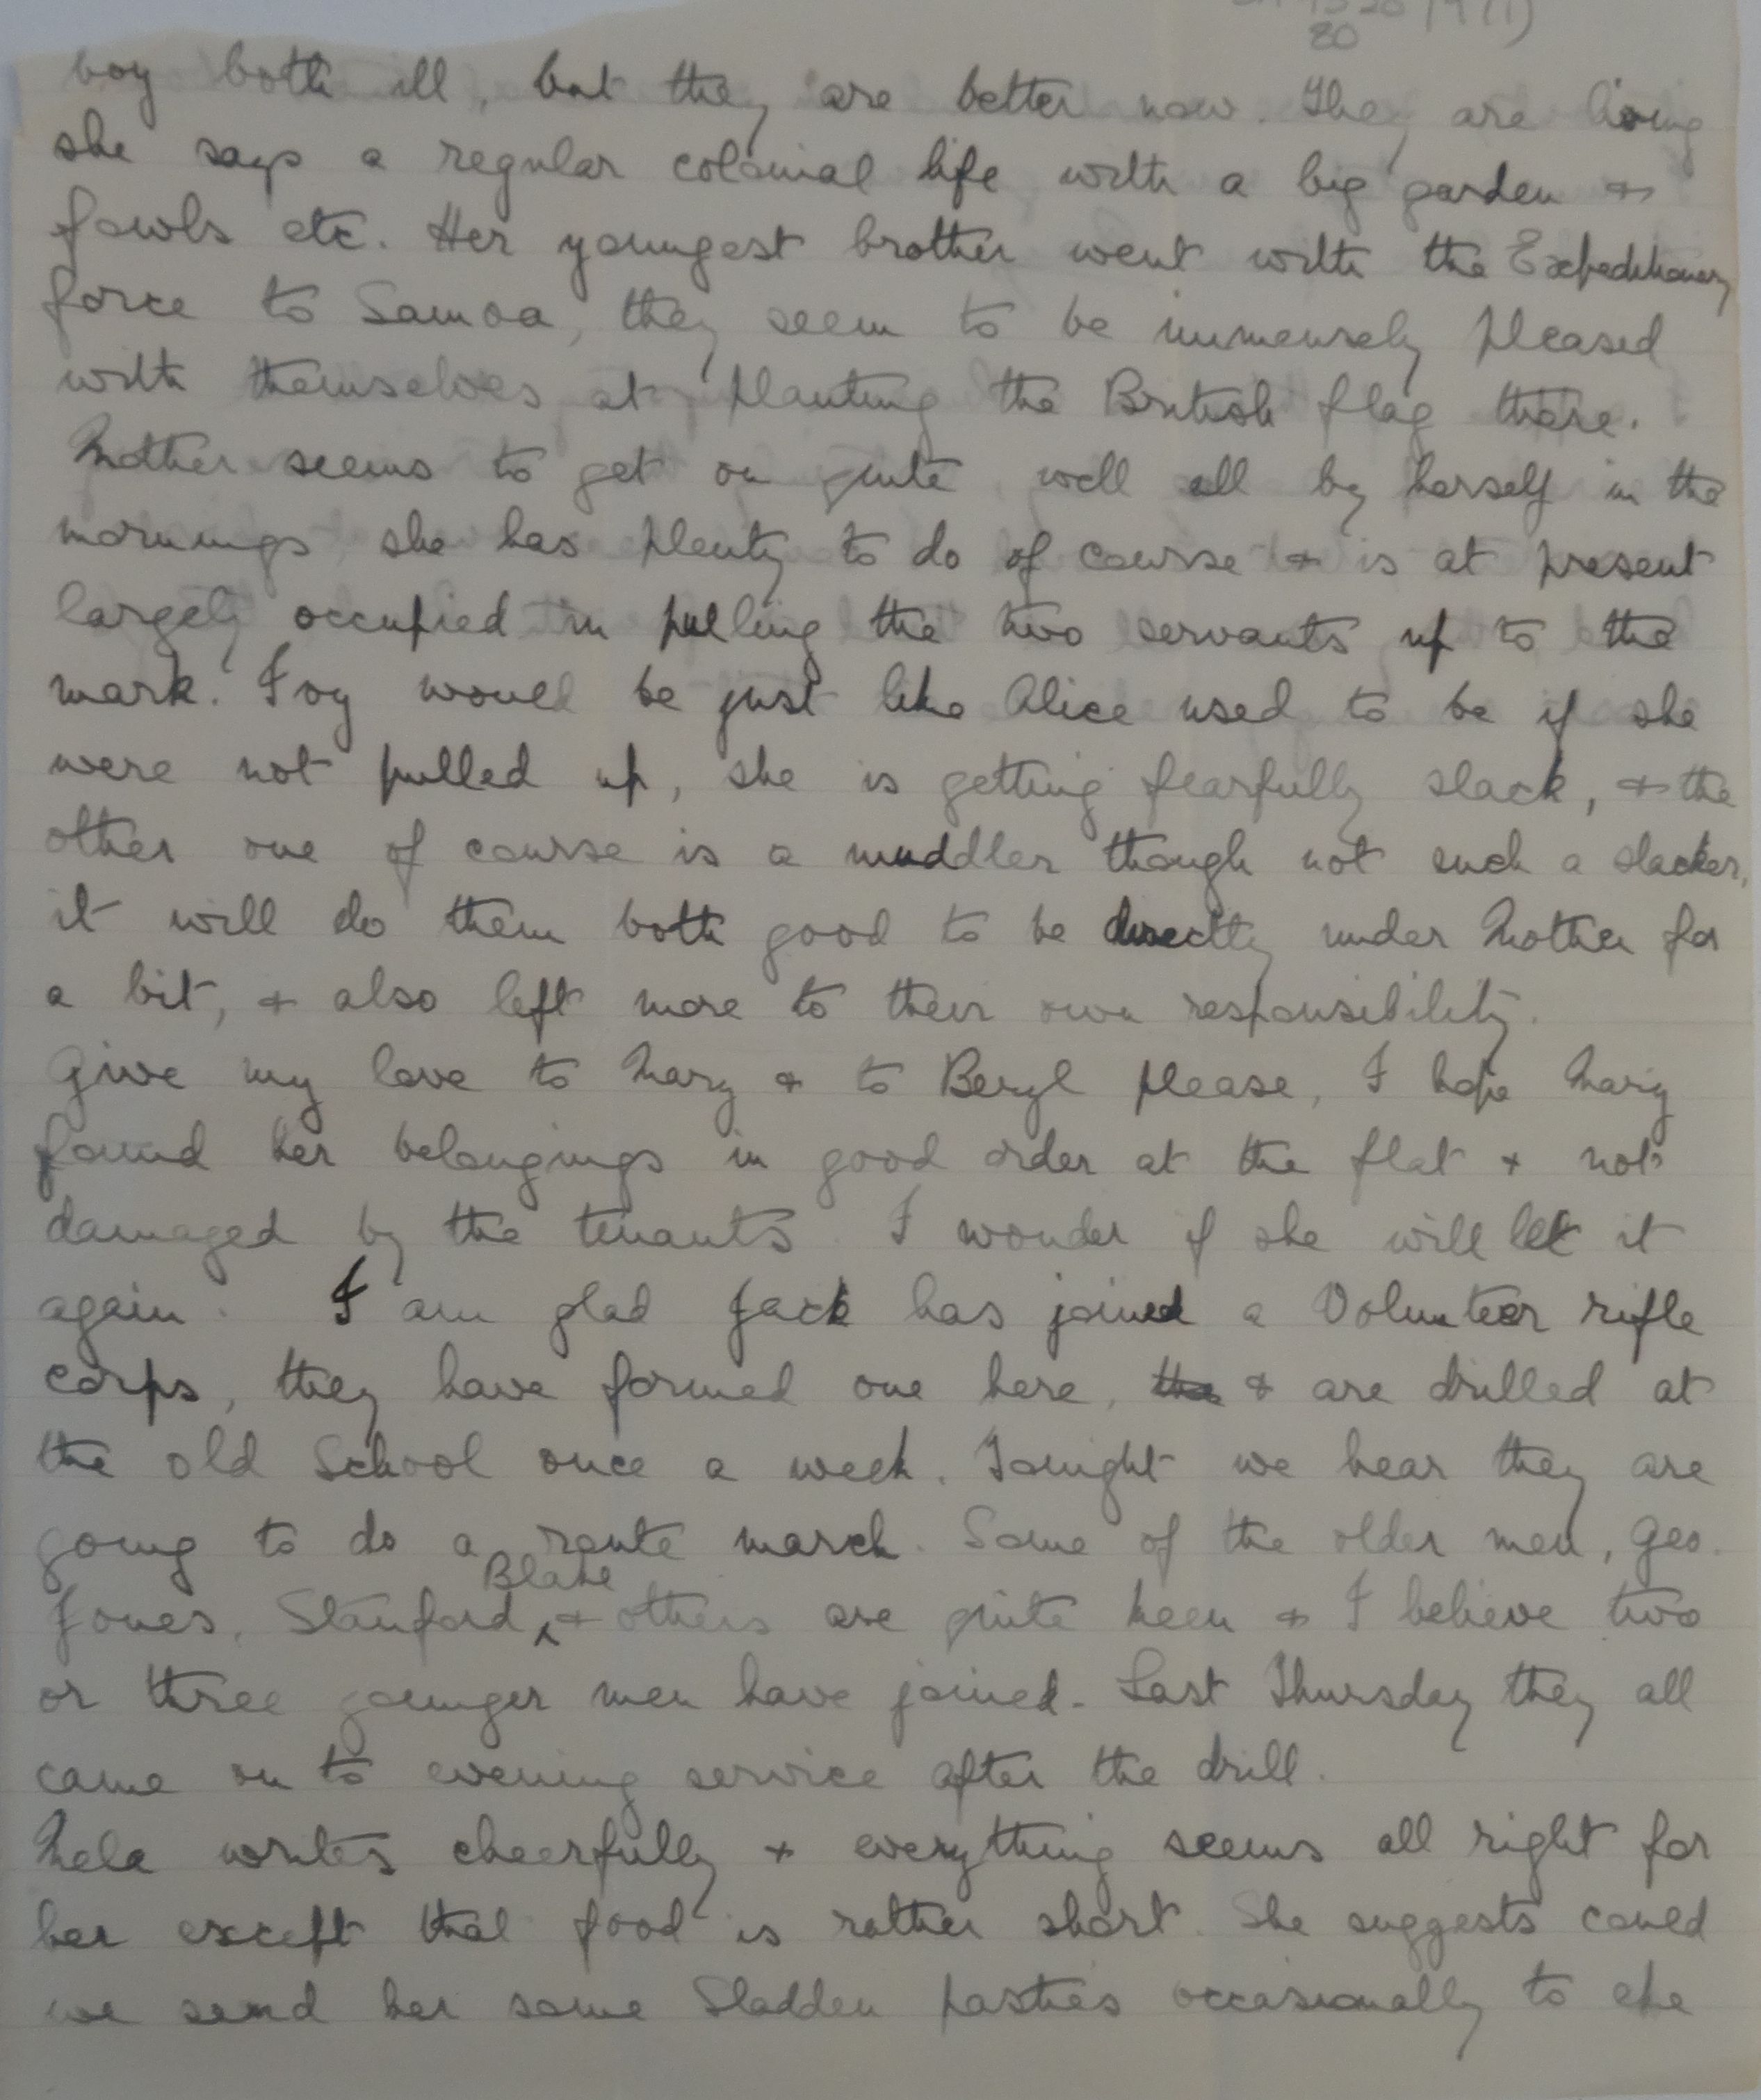 80
boy both ill, but they are better now. They are living
she says a regular colonial life with a big garden &
fowls etc. Her youngest brother went with the Expeditionary
force to Samoa, they seem to be immensely pleased
with themselves at planting the British flag there.
Mother seems to get on quite well all by herself in the
mornings, she has plenty to do of course & is at present
largely occupied in pulling the two servants up to the
mark. Ivy would be just like Alice used to be if she
were not pulled up, she is getting fearfully slack, & the
other one of course is a muddler though not such a slacker,
it will do them both good to be directly under Mother for
a bit, & also left more to their own responsibility.
Give my love to Mary & to Beryl please, I hope Mary
found her belongings in good order at the flat & not
damaged by the tenants. I wonder if she will let it
again. I am glad Jack has joined a Volunteer rifle
corps, they have formed one here, the & are drilled at
the old School once a week. Tonight we hear they are
going to do a route march. Some of the older men, Geo.
Jones, Stanford, Blake & others are quite keen & I believe two
or three younger men have joined. Last Thursday they all
came on to evening service after the drill.
Mela writes cheerfully & everything seems all right for
her except that food is rather short. She suggests could
we send her some Sladden pasties occasionally to eke